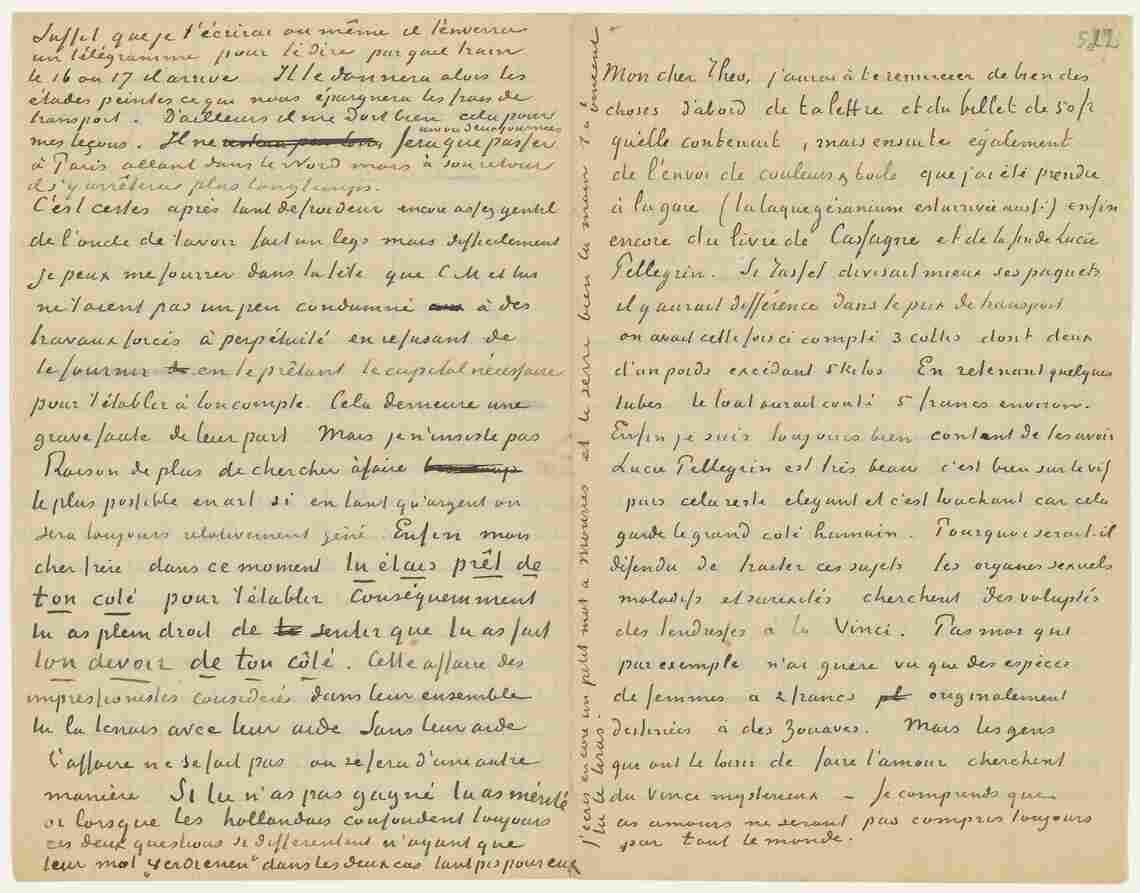 suffit que je t'écrirai ou même il t'enverra
un télégramme pour te dire par quel train
le 16 ou 17 il arrive Il te donnera alors les
études peintes ce que nous épargnera les frais de
transport. D'ailleurs il me doit bien cela pour
mes leçons. Il ne fera que passer
un ou deux journées
à Paris allant dans le Nord mais à son retour
il s'y arrêtera plus longtemps.
C'est certes après tant de froideur encore assez gentil
de l'oncle de t'avoir fait un legs mais difficilement
je peux me fourrer dans la tête que C.M et lui
ne t'aient pas un peu condamné à des
travaux forcés à perpétuité en refusant de
te fournir en te prêtant le capital nécessaire
pour t'établir à ton compte. Cela demeure une
grave faute de leur part Mais je n'insiste pas
Raison de plus de chercher à faire
le plus possible en art si en tant qu'argent on
sera toujours relativement gêné. Enfin mon
cher frère dans ce moment tu étais prêt de
ton coté pour t'établir Conséquemment
tu as plein droit de sentir que tu as fait
ton devoir de ton côté. Cette affaire des
impressionistes considerés dans leur ensemble
tu la tenais avec leur aide Sans leur aide
l'affaire ne se fait pas ou se fera d'une autre
manière Si tu n'as pas gagné tu as mérité
or lorsque les hollandais confondent toujours
ces deux questions si différentent n'ayant que
leur mot "verdienen" dans les deux cas tant pis pour eux
j'écris encore un petit mot a Mouries et te serre bien la main t à Vincent
tu le liras.
Mon cher Theo, j'aurai à te remercier de bien des
choses d'abord de ta lettre et du billet de 50 fr
qu'elle contenait, mais ensuite également
de l'envoi de couleurs & toile que j'ai été prendre
à la gare (la laque géranium est arrivée aussi) enfin
encore du livre de Cassagne et de la fin de Lucie
Pellegrin. Si Tasset divisait mieux ses paquets
il y aurait différence dans le prix de transport
on avait cette fois ci compté 3 collis dont deux
d'un poids excédant 5 kilos En retenant quelques
tubes le tout aurait couté 5 francs environ.
Enfin je suis toujours bien content de les avoir
Lucie Pellegrin est très beau c'est bien sur le vif
puis cela reste elegant et c'est touchant car cela
garde le grand coté humain. Pourquoi serait-il
défendu de traiter ces sujets les organes sexuels
maladifs et surexités cherchent des voluptés
des tendresses à la Vinci. Pas moi qui
par exemple n'ai guère vu que des espèces
de femmes a 2 francs originalement
destinées à des zouaves. Mais les gens
qui ont le loisir de faire l'amour cherchent
du Vinci mystérieux - Je comprends que
ces amours ne seront pas compris toujours
par tout le monde.